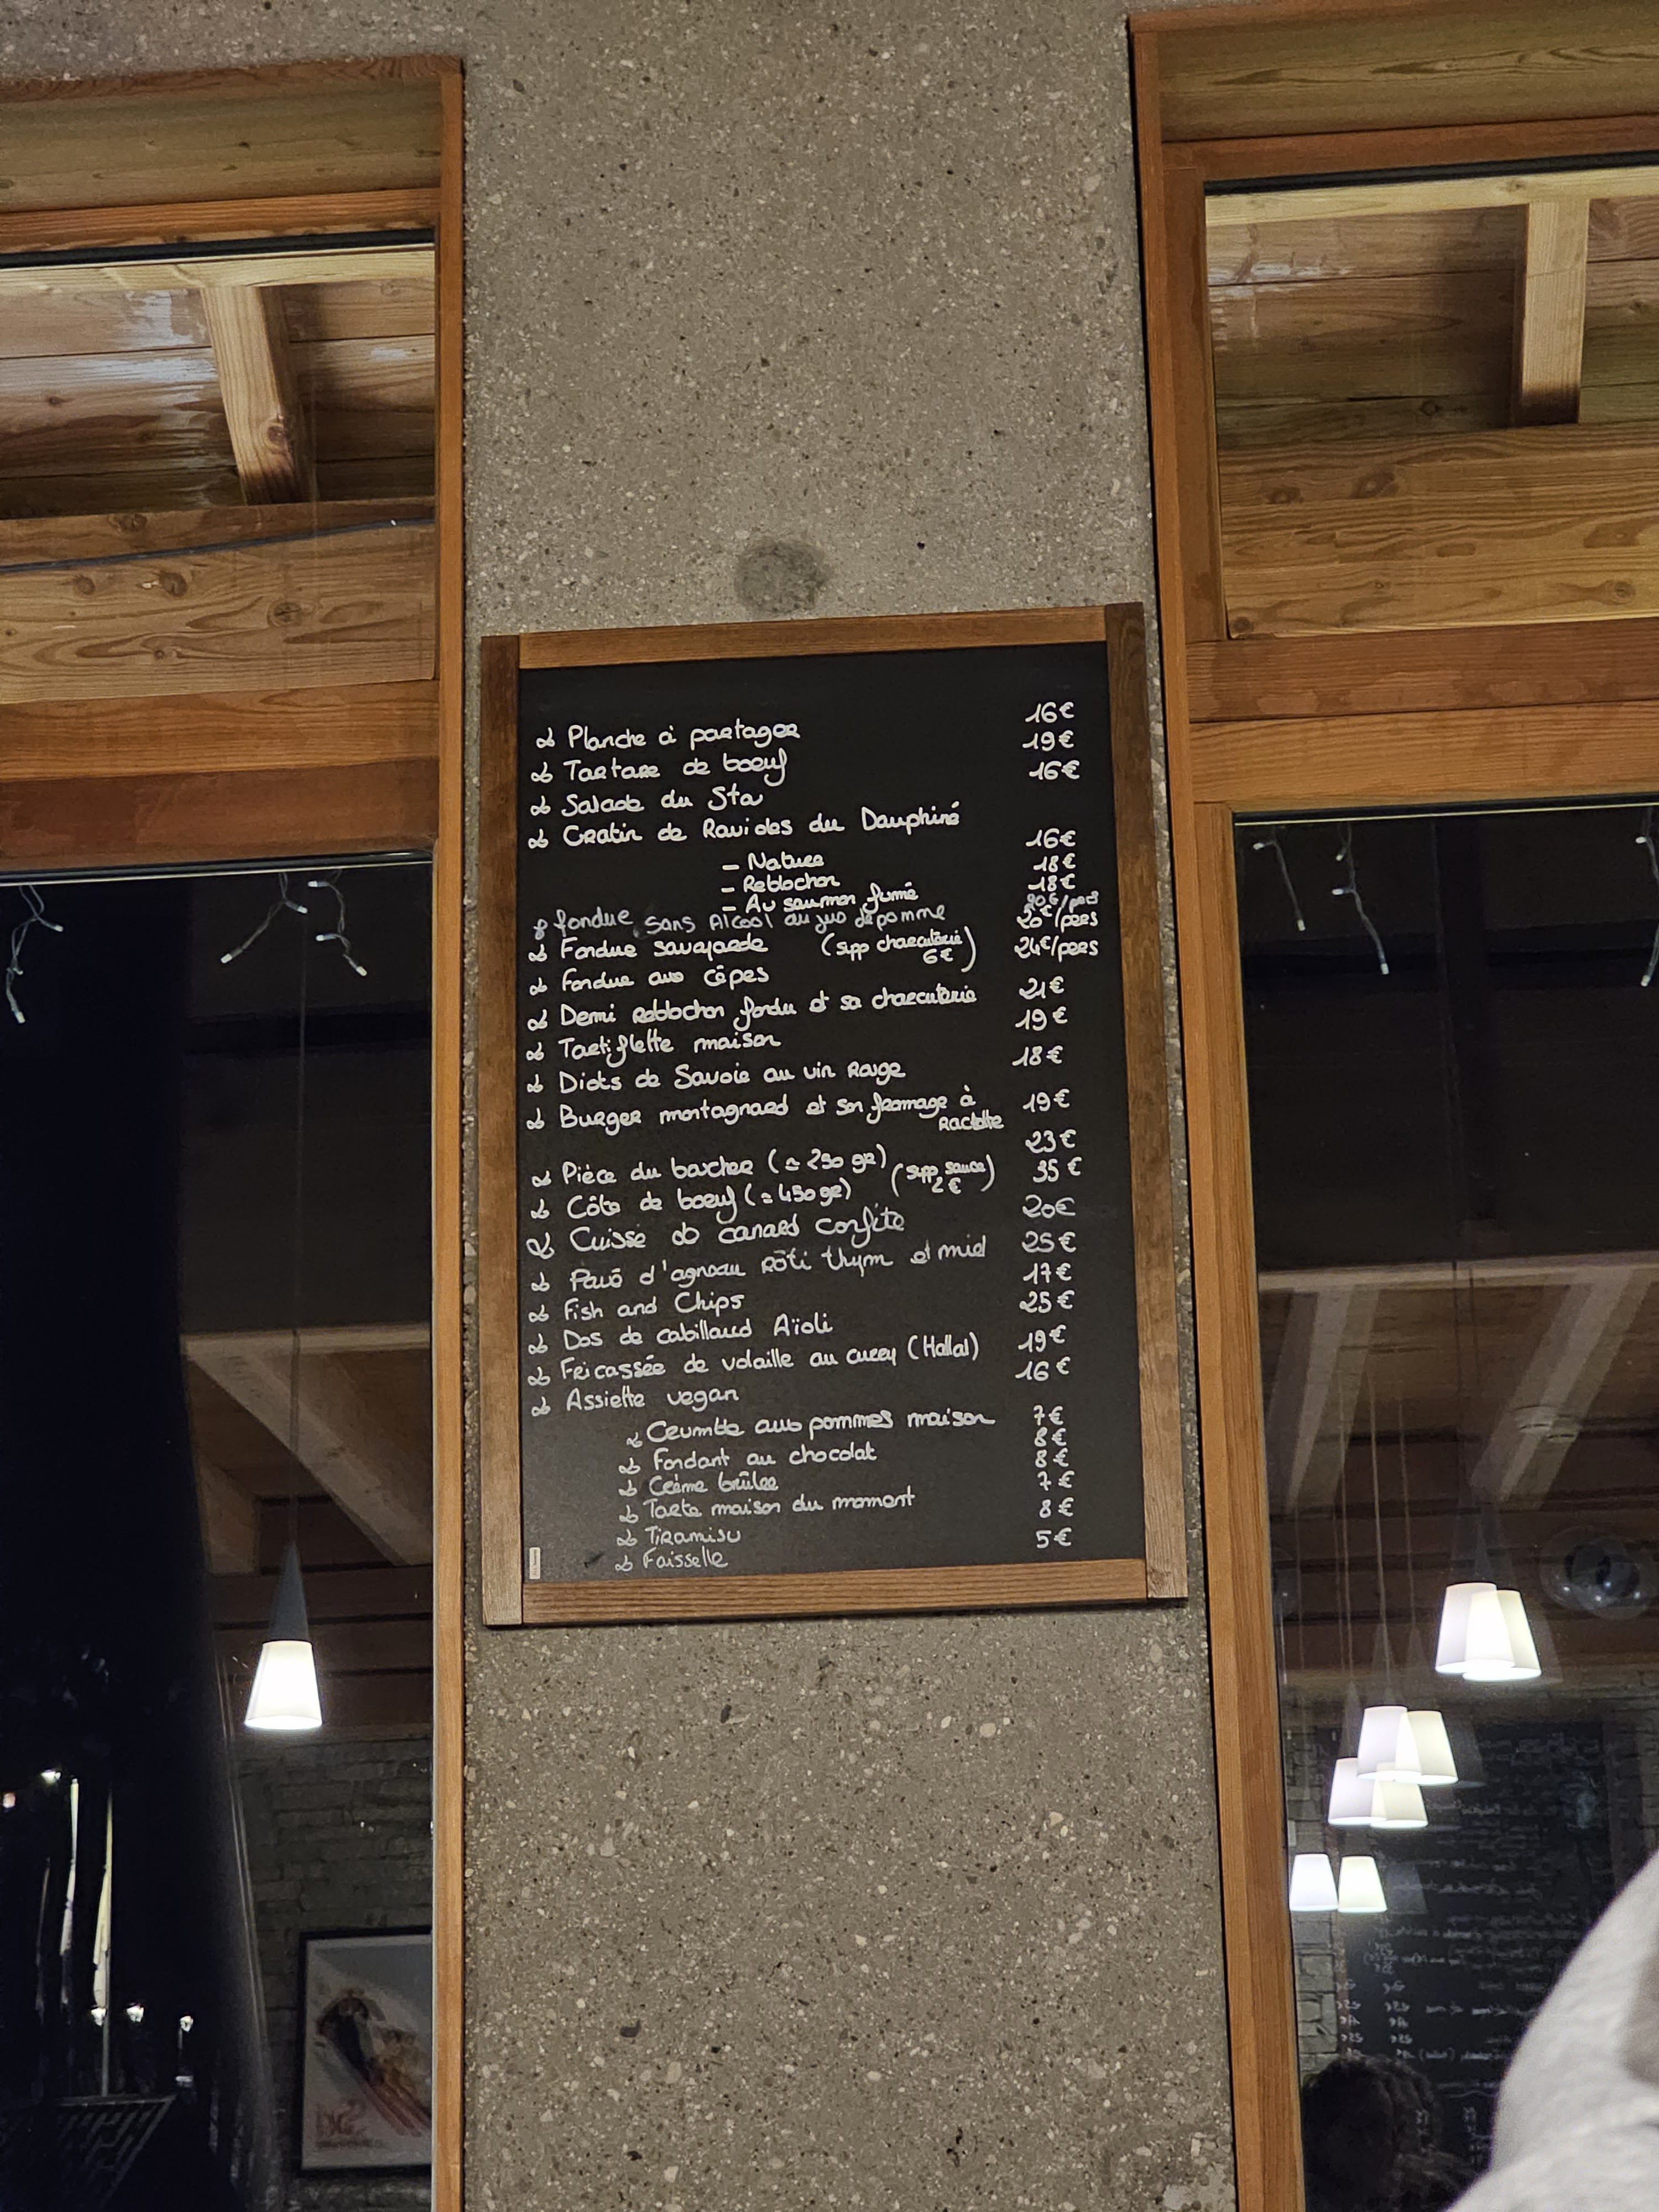 Planche à partager 16€
Tartare de boeuf 19€
Salade du Sta 16€
Gratin de Ravioles du Dauphiné
- Nature 16€
- Reblochon 18€
- Au saumon fumé 18€
fondue sans Alcool au jus de pomme 20€/pers
Fondue savoyarde (supp charcuterie 6€) 20€/pers
Fondue aux Cèpes 24€/pers
Demi reblochon fondu et sa charcuterie 21€
Tartiflette maison 19€
Diots de Savoie au vin Rouge 18€
Burger montagnard et son fromage à 19€
Raclette
Pièce du boucher (≃ 250 gr) 23€
Côte de boeuf (≃ 450 gr) (supp sauce 2€) 35€
Cuisse de canard confite 20€
Pavé d'agneau Rôti thym et miel 25€
Fish and Chips 17€
Dos de cabillaud Aïoli 25€
Fricassée de volaille au curry (Hallal) 19€
Assiette vegan 16€
Crumble aux pommes maison 7€
Fondant au chocolat 8€
Crème brûlée 8€
Tarte maison du moment 7€
Tiramisu 8€
Faisselle 5€